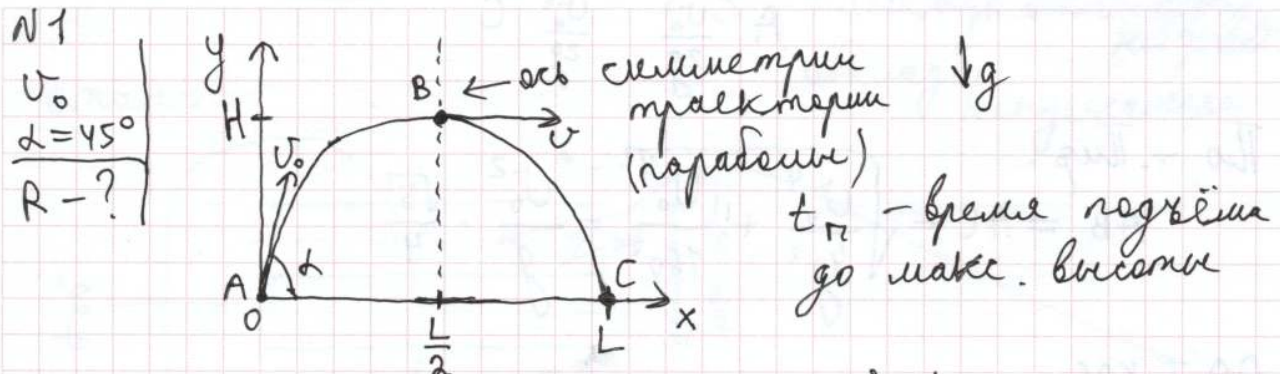 N1
v₀
α = 45°
R - ?
y
H
B
v₀
α
A
0
L/2
C
L
x
v
← ось симметрии
траектории
(параболы)
↓g
tп - время подъёма
до макс. высоты